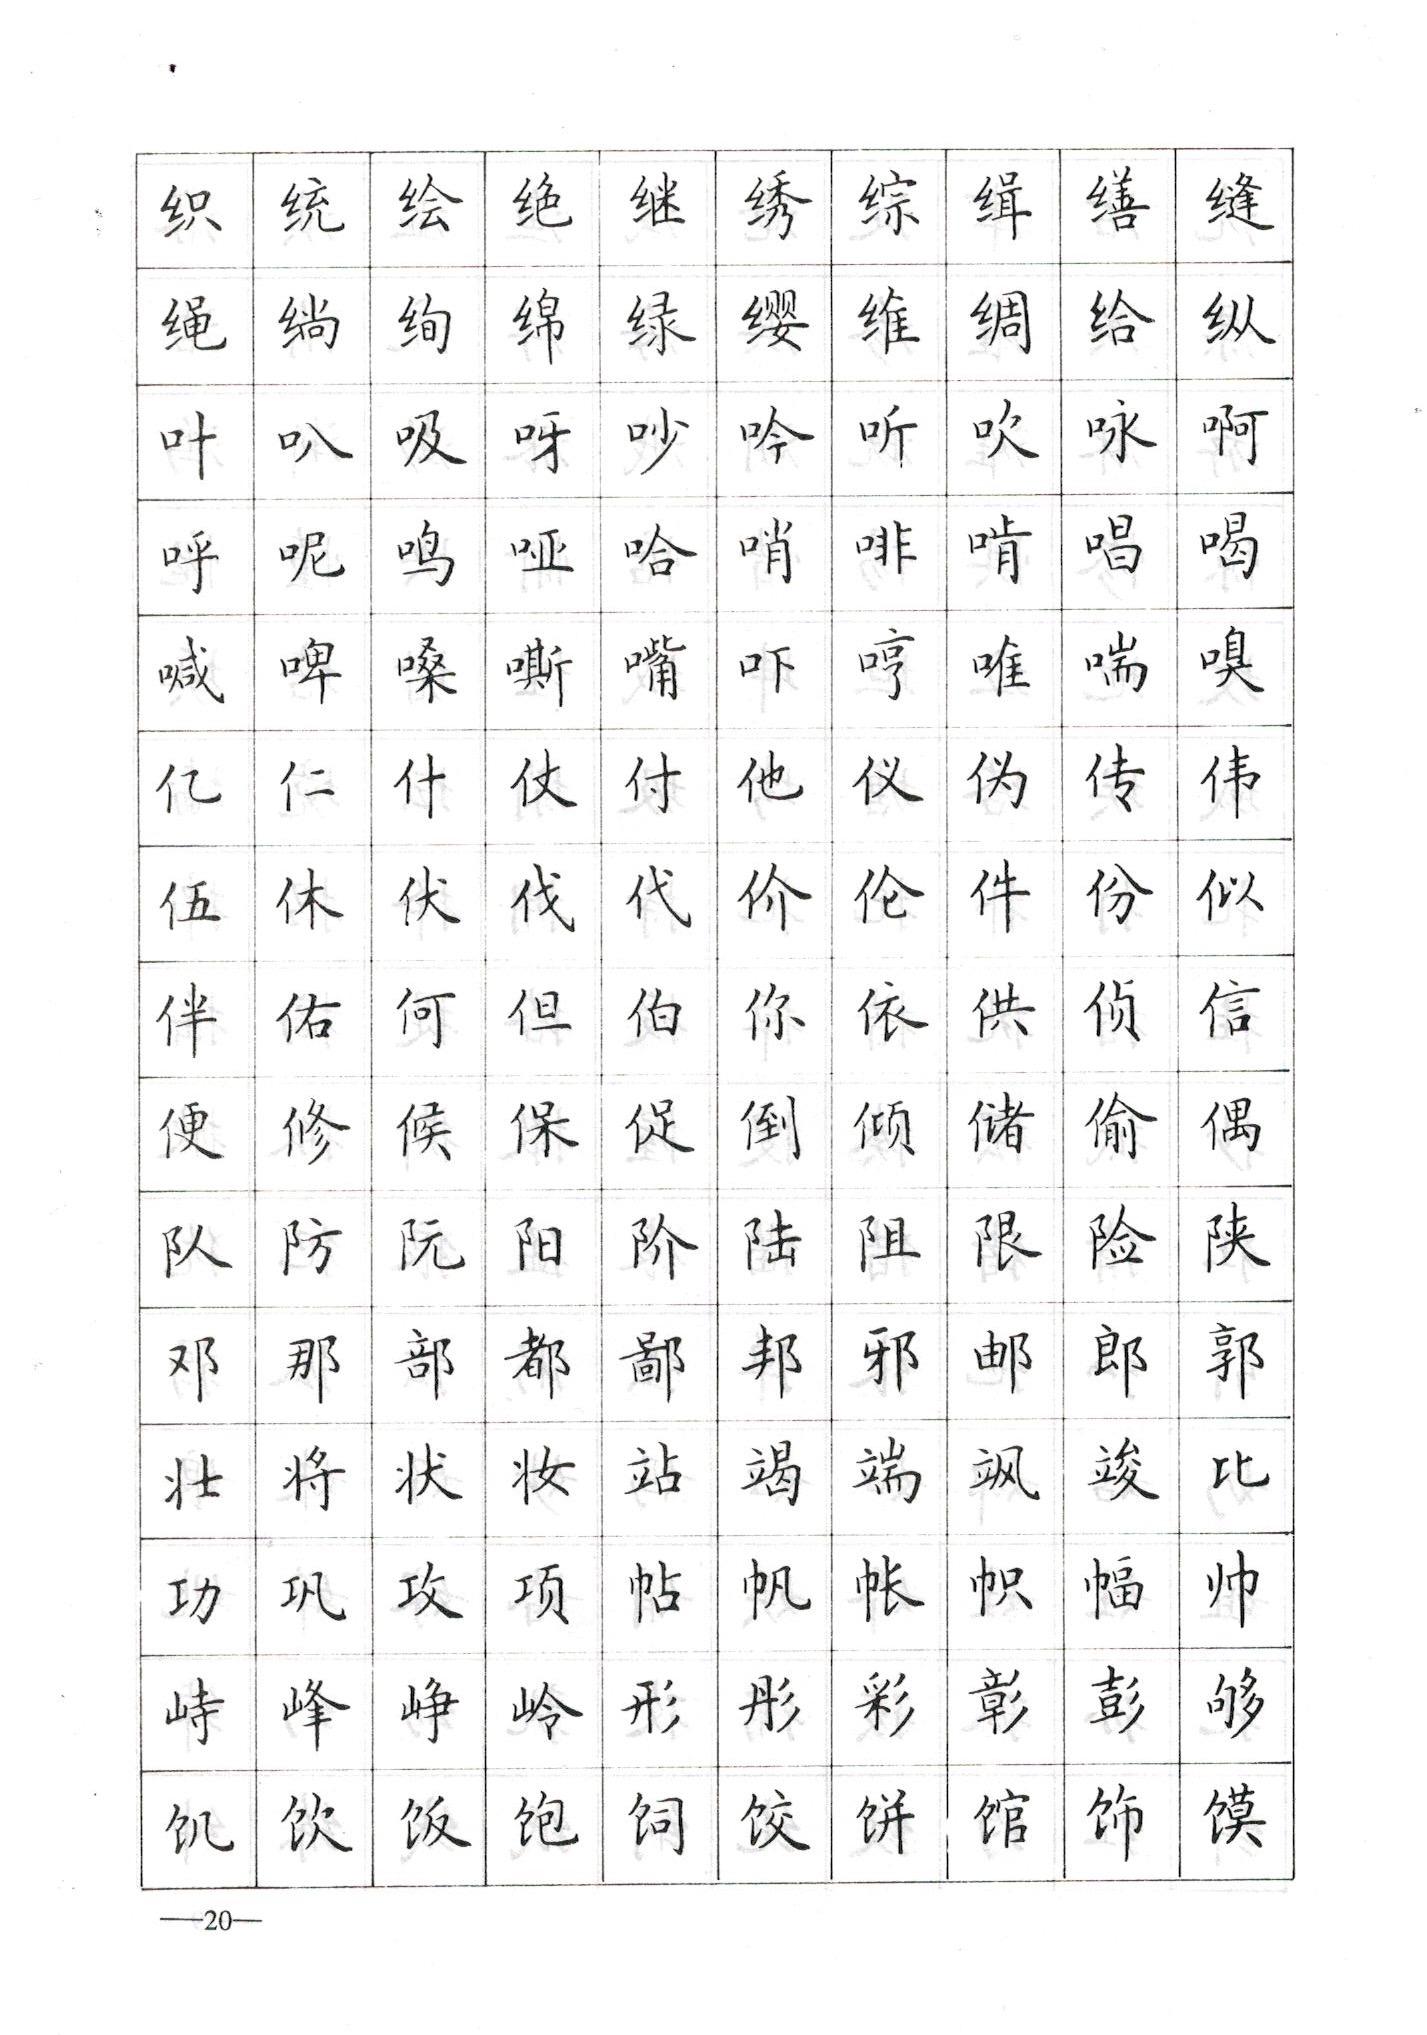 织统绘绝继绣综缉缮缝
绳绱绚绵绿缨维绸给纵
叶叭吸呀吵吟听吹咏啊
呼呢鸣哑哈哨啡啃唱喝
喊啤嗓嘶嘴吓哼唯喘嗅
亿仁什仗付他仪伪传伟
伍休伏伐代价伦件份似
伴佑何但伯你依供侦信
便修候保促倒倾储偷偶
队防阮阳阶陆阻限险陕
邓那部都鄙邦邪邮郎郭
壮将状妆站竭端飒竣比
功巩攻项帖帆帐帜幅帅
峙峰峥岭形彤彩彰彭够
饥饮饭饱饲饺饼馆饰馍
—20—